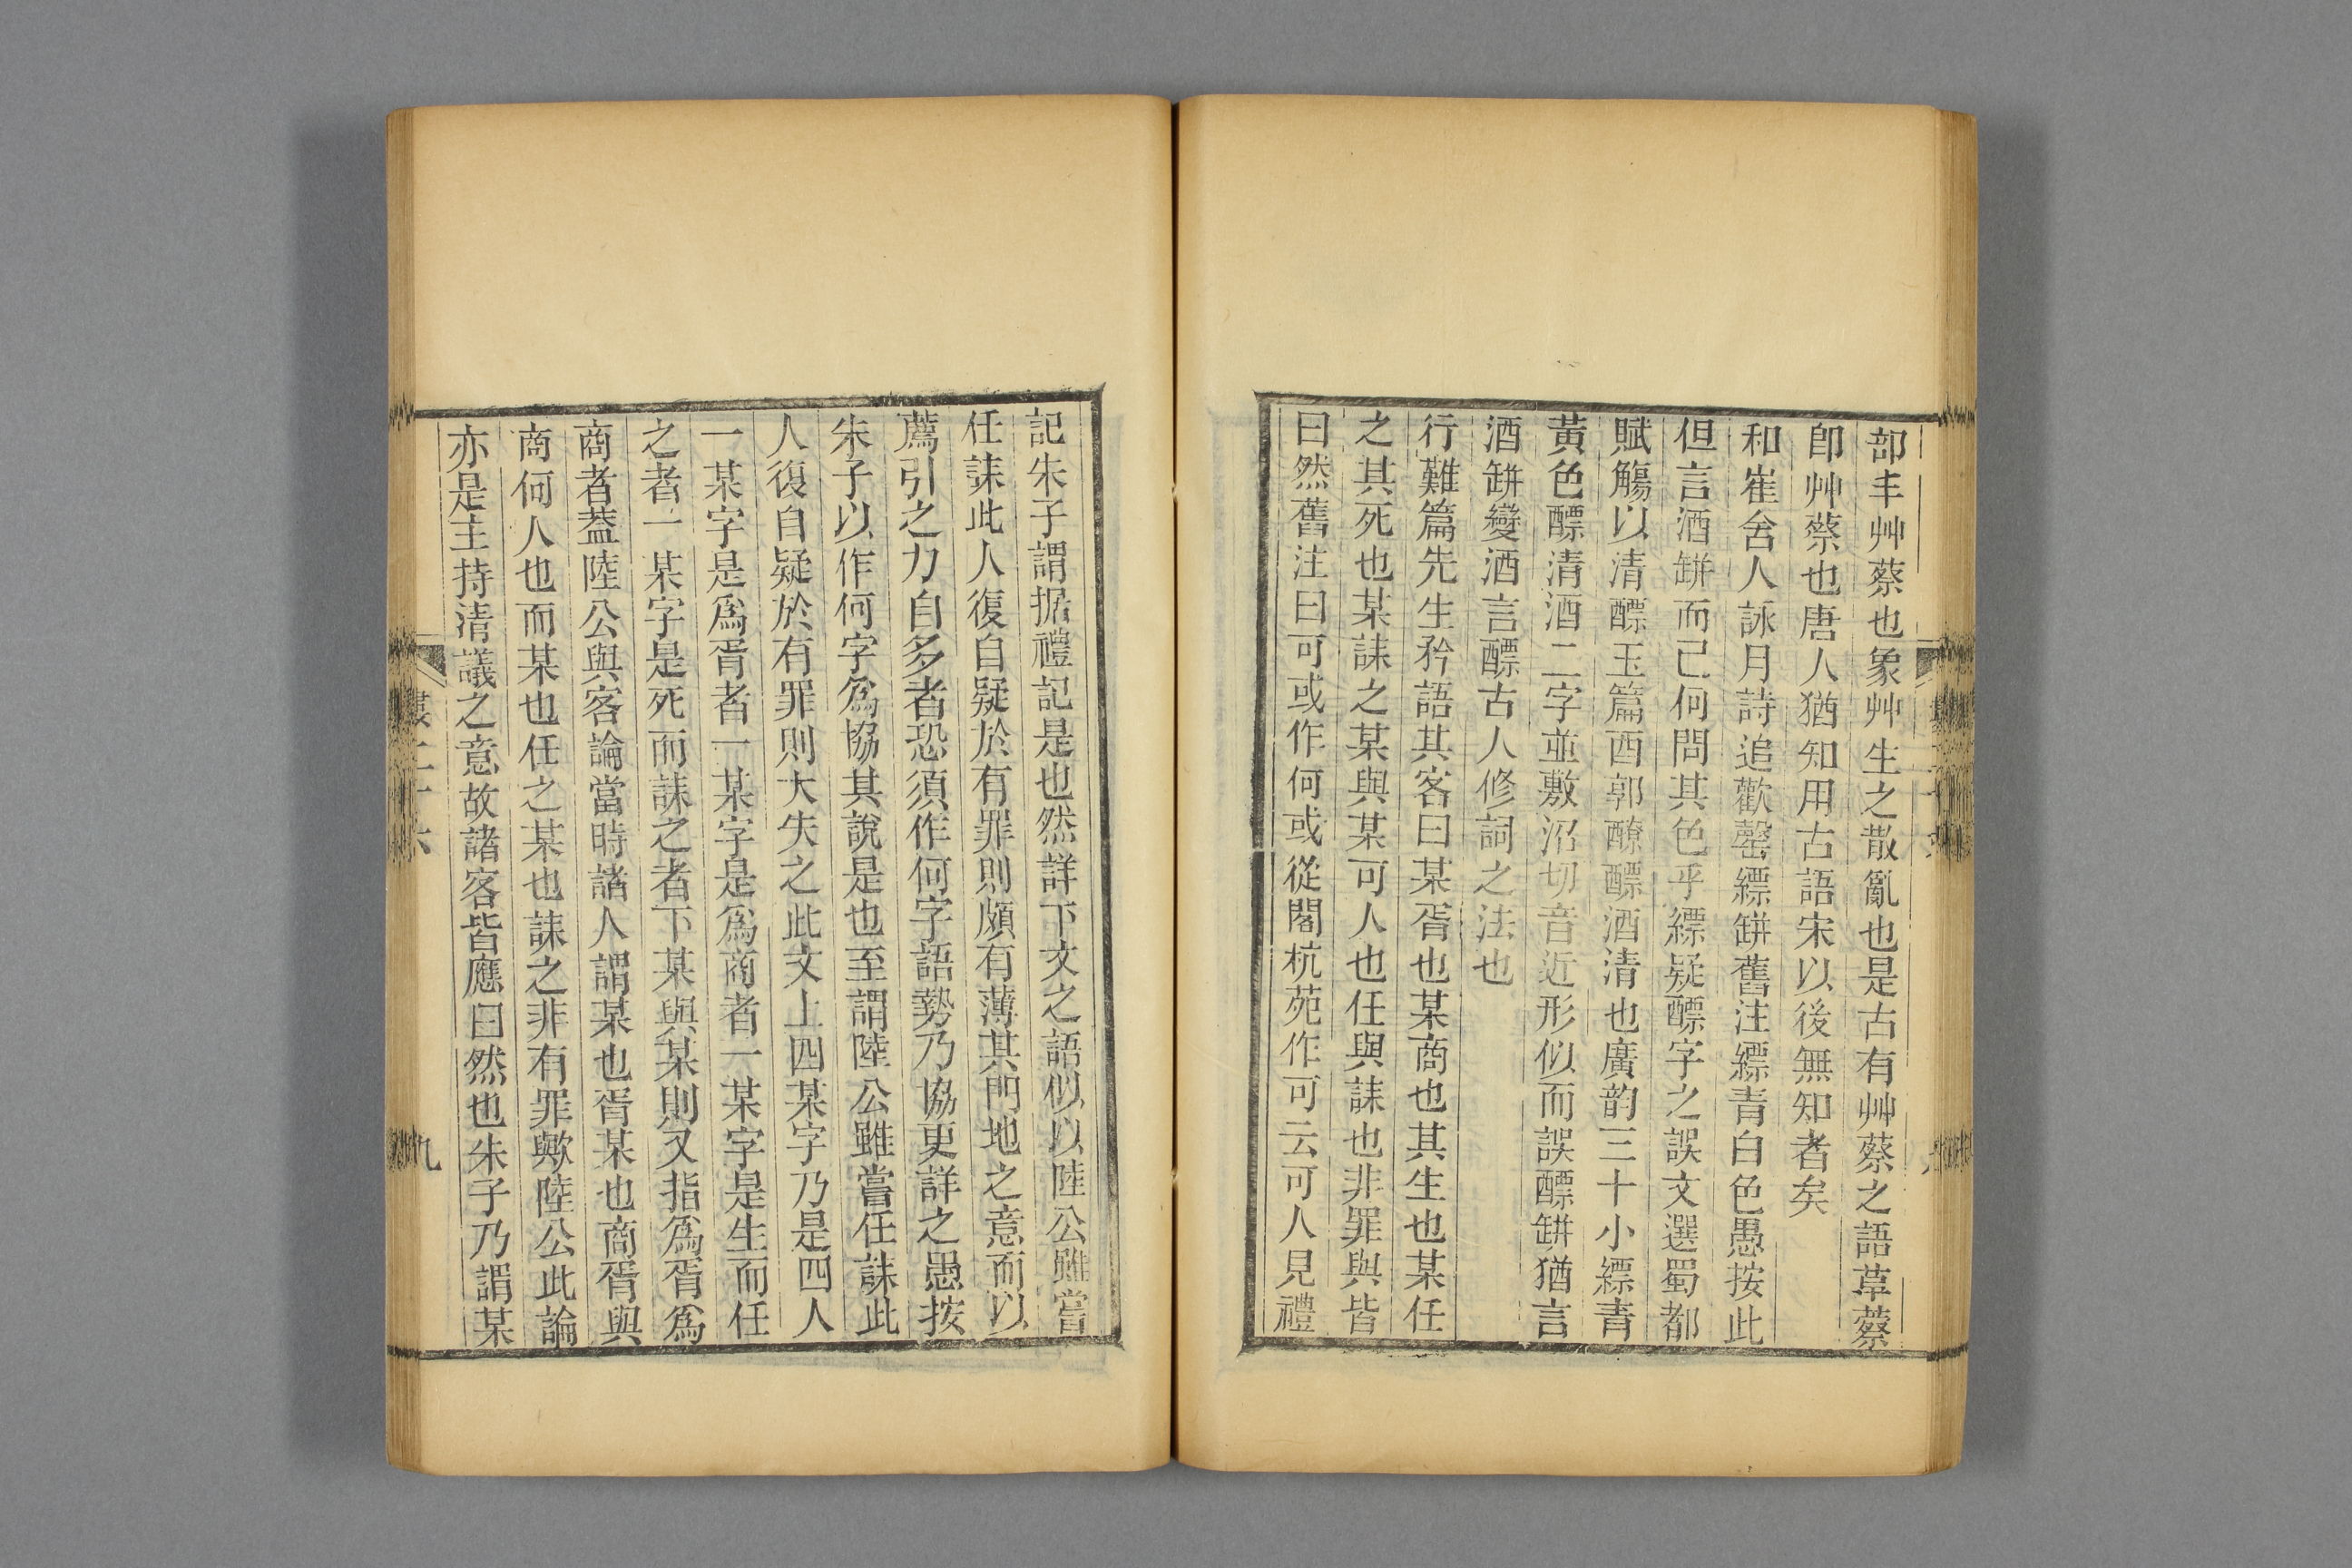 部丰艸蔡也象艸生之散亂也是古有艸蔡之語草蔡
卽艸蔡也唐人猶知用古語宋以後無知者矣
和崔舍人詠月詩追歡罄縹缾舊注縹青白色愚按此
但言酒缾而己何問其色乎縹疑醥字之誤文選蜀都
賦觴以清醥玉篇酉部醥酒清也廣韵三十小縹青
黃色醥清酒二字並敷沼切音近形似而誤醥缾猶言
酒缾變酒言醥古人修詞之法也
行難篇先生矜語其客曰某胥也某商也其生也某任
之其死也某誄之某與某可人也任與誄也非罪與皆
曰然舊注曰可或作何或從閣杭苑作可云可人見禮
記朱子謂据禮記是也然詳下文之語似以陸公雖嘗
任誄此人復自疑於有罪則頗有薄其門地之意而以
薦引之力自多者恐須作何字語勢乃協更詳之愚按
朱子以作何字爲協其說是也至謂陸公雖嘗任誄此
人復自疑於有罪則大失之此文上四某字乃是四人
一某字是爲胥者一某字是爲商者一某字是生而任
之者一某字是死而誄之者下某與某則又指爲胥爲
商者葢陸公與客論當時諸人謂某也胥某也商胥與
商何人也而某也任之某也誄之非有罪歟陸公此論
亦是主持清議之意故諸客皆應曰然也朱子乃謂某
九